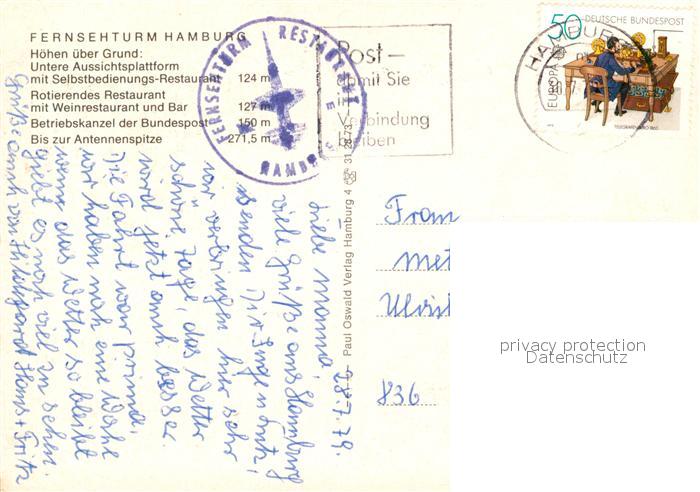 FERNSEHTURM HAMBURG
Höhen über Grund:
Untere Aussichtsplattform
mit Selbstbedienungs-Restaurant 124 m
Rotierendes Restaurant
mit Weinrestaurant und Bar 127 m
Betriebskanzel der Bundespost 150 m
Bis zur Antennenspitze 271,5 m
FERNSEHTURM RESTAURANT
HAMBURG
Post –
damit Sie
in
Verbindung
bleiben
50 DEUTSCHE BUNDESPOST
EUROPA
HAMBURG
Paul Oswald Verlag Hamburg 4
28.7.79.
Liebe Mama,
viele Grüße aus Hamburg
senden Dir Inge u.
wir verbringen hier sehr
schöne Tage, das Wetter
wird jetzt auch besser.
Die Fahrt war prima,
wir haben noch eine Woche
wenn das Wetter so bleibt
giebt es noch viel zu sehen.
Grüße auch von Hildegard Hans + Fritz
Frau
Met
Ulri
836
privacy protection
Datenschutz